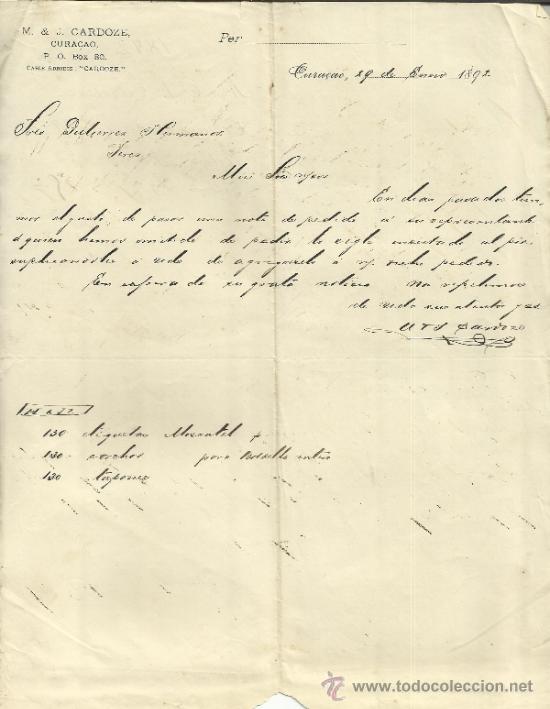 M. & J. CARDOZE,
CURAÇAO,
P. O. Box 80.
CABLE ADDRESS: "CARDOZE."
Per
Curaçao, 29 de Enero 1892
Sres. Gutierrez Hermanos
Jerez
Mui Sres.
En dias pasados tuvi-
mos el gusto de pasar una nota de pedido á su representante
á quien hemos omitido de pedir lo sigte anotado al pie
suplicandole á de agregarlo á pedido.
En espera de su grata noticia nos repetimos
de su atento
M & J Cardoze
130 etiquetas Moscatel
130 corchos para Botella
130 tapones
www.todocoleccion.net